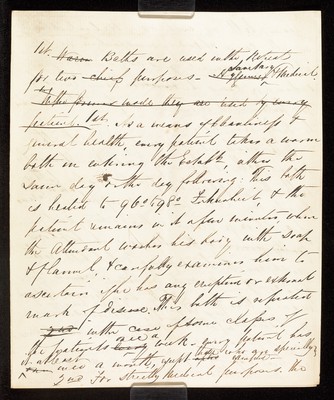 1st. Warm Baths are used in the Retreat
Sanitary
for two chief purposes - & Medical.
In the former mode they are used by every
patient. 1st. As a means of cleanliness &
general health, every patient takes a warm
bath on entering the establt, either the
same day or the day following. This bath
is heated to 96° & 98° Fahrenheit, & the
patient remains in it after minutes when
the attendant washes his body with soap
& flannel, & carefully examines him to
ascertain if he has any eruption or external
mark of disease. This bath is repeated
with the case of some classes of
the patients once a week. Every patient has
at least
one a month, except those who are specially
2nd For strictly medical purposes, the